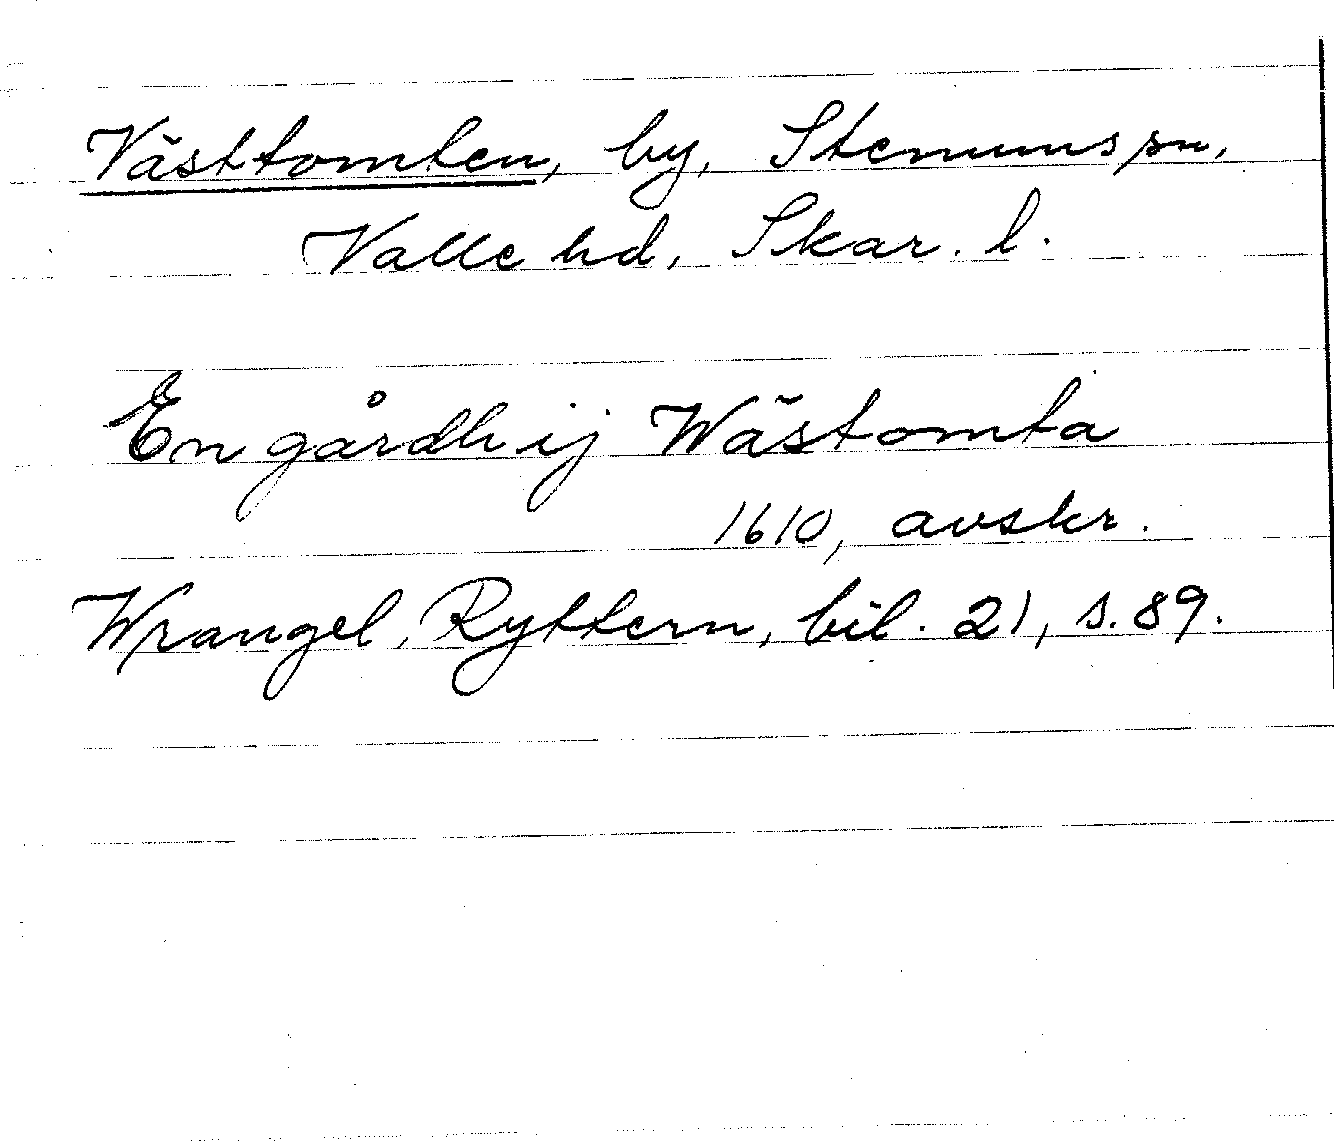 Västtomten, by, Stenums sn,
Valle hd, Skar. l.
En gårdh ij Wästomta
1610, avskr.
Wrangel, Ryttern, bil. 21, s. 89.